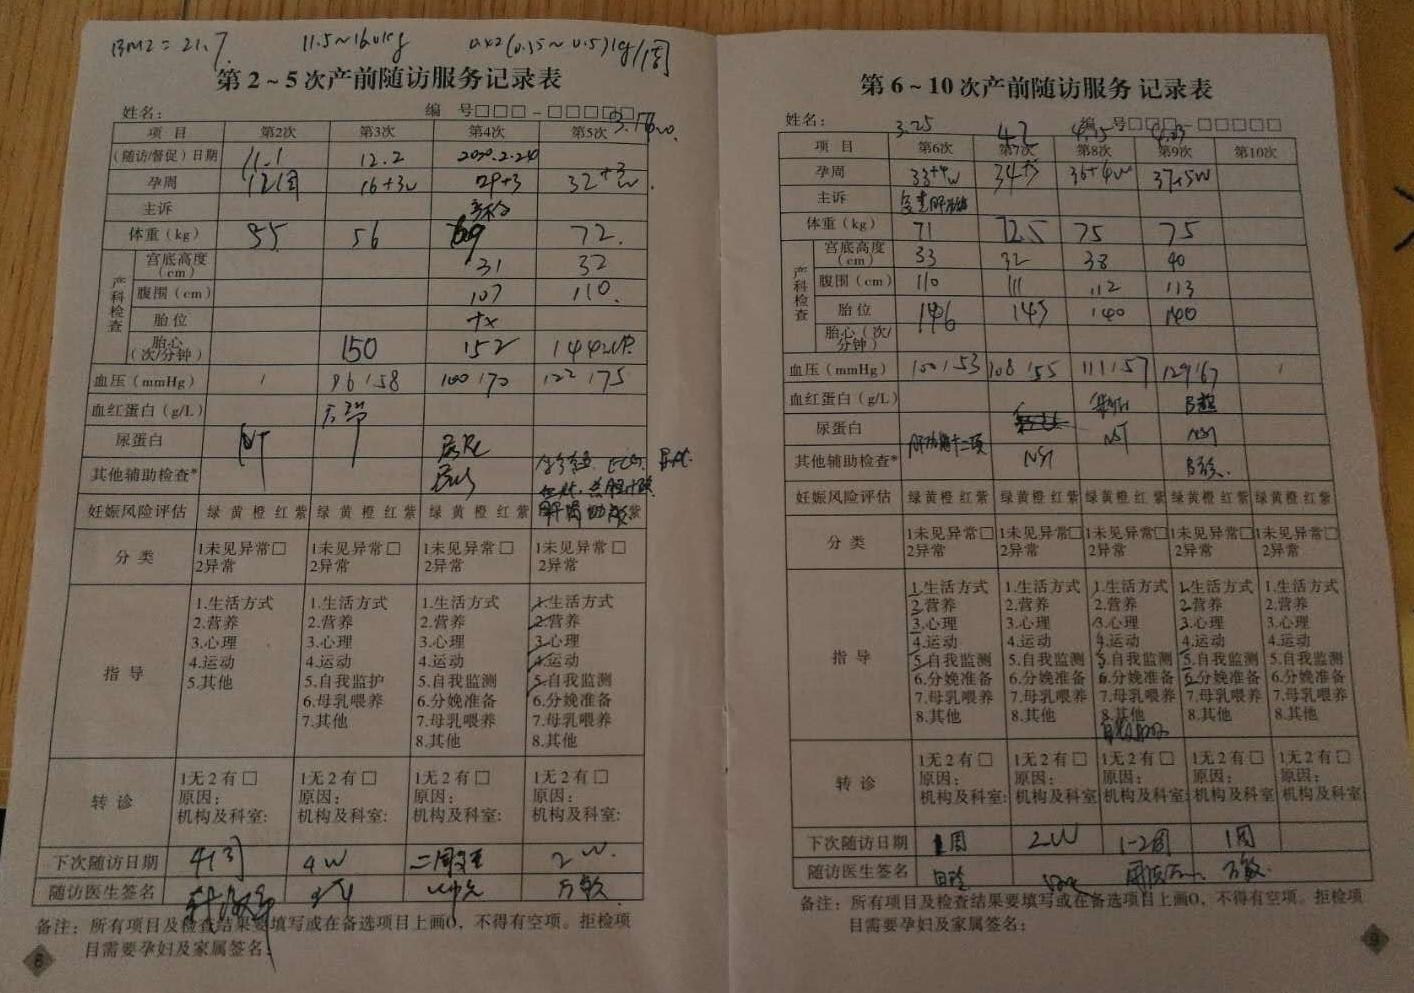 BMI = 21.7 11.5~16.0kg (0.35~0.5)kg/周
第2~5次产前随访服务记录表
姓名： 编 号□□□-□□□□□
项 目 第2次 第3次 第4次 第5次
(随访/督促)日期 11.1 12.2 2020.2.24
孕周 12周 16+3w 29+3 32+3w
主诉
体重（kg） 55 56 69 72.
产科检查
宫底高度（cm） 31 32
腹围（cm） 107 110.
胎位
胎心（次/分钟） 150 152 144
血压（mmHg） / 96/58 100/70 122/75
血红蛋白（g/L）
尿蛋白
其他辅助检查*
妊娠风险评估 绿 黄 橙 红 紫 绿 黄 橙 红 紫 绿 黄 橙 红 紫 紫
分 类 1未见异常□ 1未见异常□ 1未见异常□ 1未见异常□
2异常 2异常 2异常 2异常
指 导
1.生活方式 1.生活方式 1.生活方式 1.生活方式
2.营养 2.营养 2.营养 2.营养
3.心理 3.心理 3.心理 3.心理
4.运动 4.运动 4.运动 4.运动
5.其他 5.自我监护 5.自我监测 5.自我监测
6.母乳喂养 6.分娩准备 6.分娩准备
7.其他 7.母乳喂养 7.母乳喂养
8.其他 8.其他
转 诊
1无2有□ 1无2有□ 1无2有□ 1无2有□
原因： 原因： 原因： 原因：
机构及科室: 机构及科室: 机构及科室: 机构及科室:
下次随访日期 4周 4W 2W.
随访医生签名
备注：所有项目及检查结果要填写或在备选项目上画O，不得有空项。拒检项
目需要孕妇及家属签名：
8
第6~10次产前随访服务 记录表
姓名： 编 号□□□-□□□□□
3.25 4.15
项 目 第6次 第7次 第8次 第9次 第10次
孕周 33+4w 34+5 36+4w 37+5w
主诉
体重（kg） 71 72.5 75 75
产科检查
宫底高度（cm） 33 32 38 40
腹围（cm） 110 111 112 113
胎位 146 145 140 140
胎心（次/分钟）
血压（mmHg） 100/53 108/55 111/57 129/67 /
血红蛋白（g/L） B超
尿蛋白 NST NST
其他辅助检查* NST
妊娠风险评估 绿黄橙 红紫 绿黄橙 红紫 绿黄橙 红 紫 绿黄橙 红紫 绿黄橙 红紫
分 类 1未见异常□ 1未见异常□ 1未见异常□ 1未见异常□ 1未见异常□
2异常 2异常 2异常 2异常 2异常
指 导
1.生活方式 1.生活方式 1.生活方式 1.生活方式 1.生活方式
2.营养 2.营养 2.营养 2.营养 2.营养
3.心理 3.心理 3.心理 3.心理 3.心理
4.运动 4.运动 4.运动 4.运动 4.运动
5.自我监测 5.自我监测 5.自我监测 5.自我监测 5.自我监测
6.分娩准备 6.分娩准备 6.分娩准备 6.分娩准备 6.分娩准备
7.母乳喂养 7.母乳喂养 7.母乳喂养 7.母乳喂养 7.母乳喂养
8.其他 8.其他 8.其他 8.其他 8.其他
转 诊
1无2有□ 1无2有□ 1无2有□ 1无2有□ 1无2有□
原因： 原因： 原因： 原因： 原因：
机构及科室: 机构及科室 机构及科室: 机构及科室 机构及科室
下次随访日期 1周 2W 1-2周 1周
随访医生签名
备注：所有项目及检查结果要填写或在备选项目上画O，不得有空项。拒检项
目需要孕妇及家属签名：
9